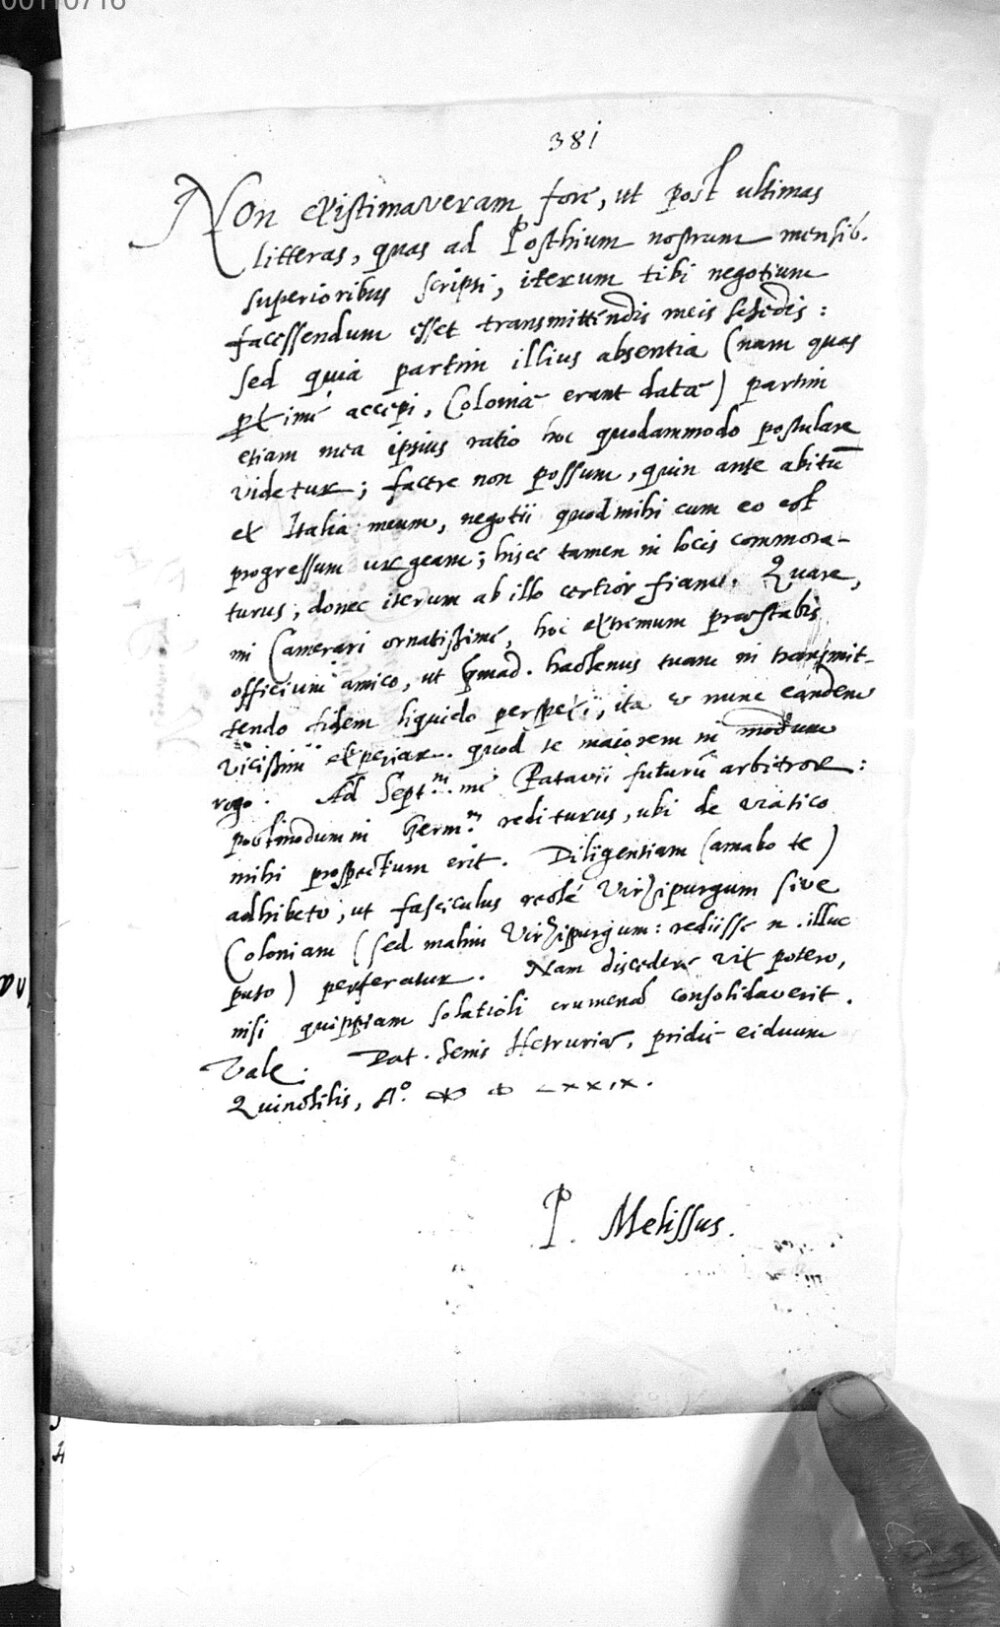 00110716
381
Non existimaveram fore, ut post ultimas
litteras, quas ad Posthium nostrum mensib.
superioribus scripsi, iterum tibi negotium
facessendum esset transmittendis meis schedis:
sed quia partim illius absentia (nam quas
proximè accepi, Coloniâ erant datae) partim
etiam mea ipsius ratio hoc quodammodo postulare
videtur; facere non possum, quin ante abitū
ex Italia meum, negotii quod mihi cum eo est
progressum urgeam; hisce tamen in locis commora-
turus, donec iterum ab illo certior fiam. Quare,
mi Camerari ornatissime, hoc extremum praestabis
officium amico, ut hactenus tuam in transmit-
tendo fidem liquido perspexi, ita & nunc eandem
vicissim experiar. quod te maiorem in modum
rogo. Ad Sept. me Patavii futurū arbitror:
postmodum in Germ. rediturus, ubi de viatico
mihi prospectum erit. Diligentiam (amabo te)
adhibeto, ut fasciculus rectè Virzipurgum sive
Coloniam (sed malim Virzipurgum: rediisse n. illuc
puto) perferatur. Nam discedere vix potero,
nisi quippiam solatioli crumenae consolidaverit.
Vale. Dat. Senis Hetruriae, pridie eiduum
Quinctilis, Aº. ↀ LXXIX.
P. Melissus.